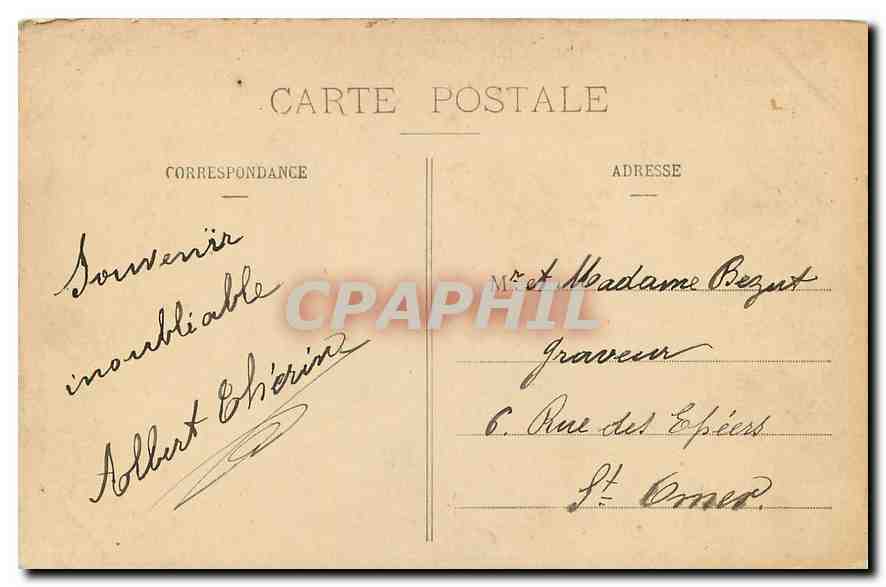 CARTE POSTALE
CORRESPONDANCE
Souvenir
inoubliable
Albert Thérin
ADRESSE
Mr et Madame Bezut
graveur
6. Rue des Epéers
St Omer.
CPAPHIL